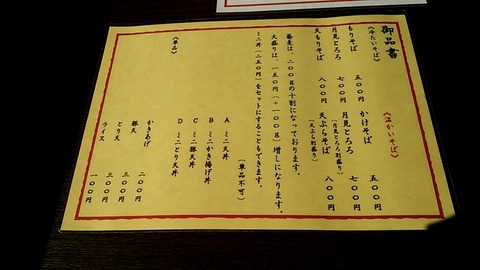 御品書
〈冷たいそば〉
もりそば 五〇〇円
月見とろろ 七〇〇円
天もりそば 八〇〇円
〈温かいそば〉
かけそば 五〇〇円
月見とろろ 七〇〇円
(月見とろろ別盛り)
天ぷらそば 八〇〇円
(天ぷら別盛り)
蕎麦は、二〇〇gの十割になっております。
大盛りは、一五〇円(+一〇〇g)増しになります。
ミニ丼(二五〇円)をセットにすることもできます。
(単品不可)
A ミニ天丼
B ミニかき揚げ丼
C ミニ豚天丼
D ミニとり天丼
〈単品〉
かきあげ 二〇〇円
豚天 三〇〇円
とり天 三〇〇円
ライス 一〇〇円